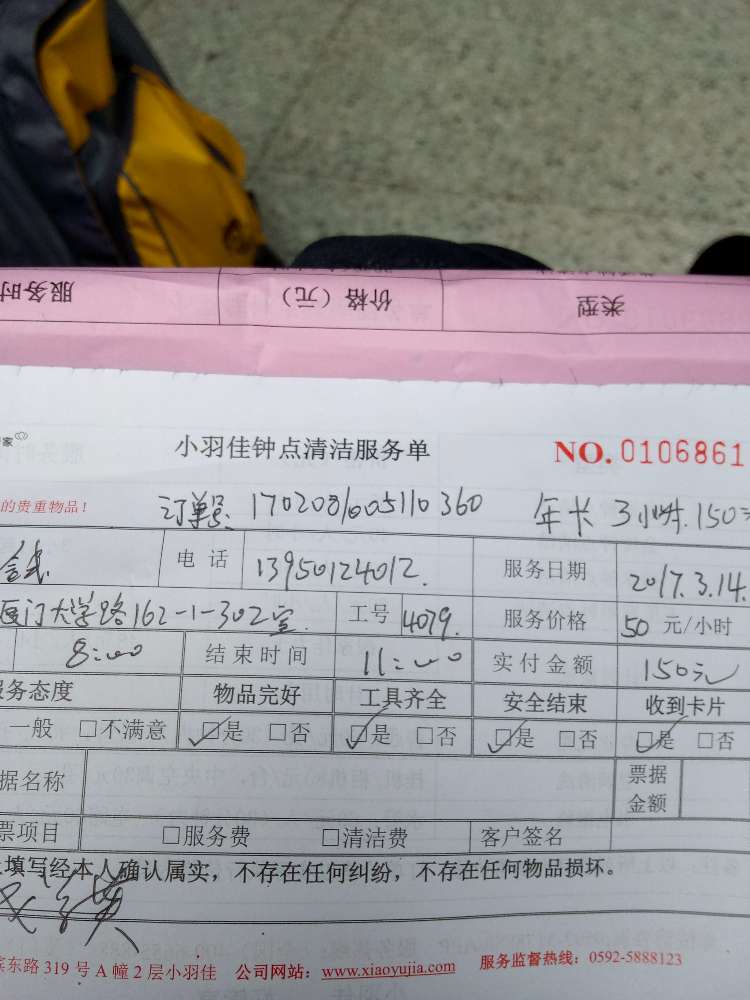 服务时 价格（元） 类型
家
小羽佳钟点清洁服务单 NO. 0106861
的贵重物品！ 订单号 年卡 3小时. 150元
电话 13950124012. 服务日期 2017.3.14.
厦门大学路162-1-302室 工号 4079. 服务价格 50 元/小时
8:00 结束时间 11:00 实付金额 150元
服务态度 物品完好 工具齐全 安全结束 收到卡片
一般 □不满意 ☑是 □否 ☑是 □否 ☑是 □否 ☑是 □否
据名称 票据金额
票项目 □服务费 □清洁费 客户签名
上填写经本人确认属实，不存在任何纠纷，不存在任何物品损坏。
滨东路 319 号 A 幢 2 层小羽佳 公司网站：www.xiaoyujia.com 服务监督热线：0592-5888123